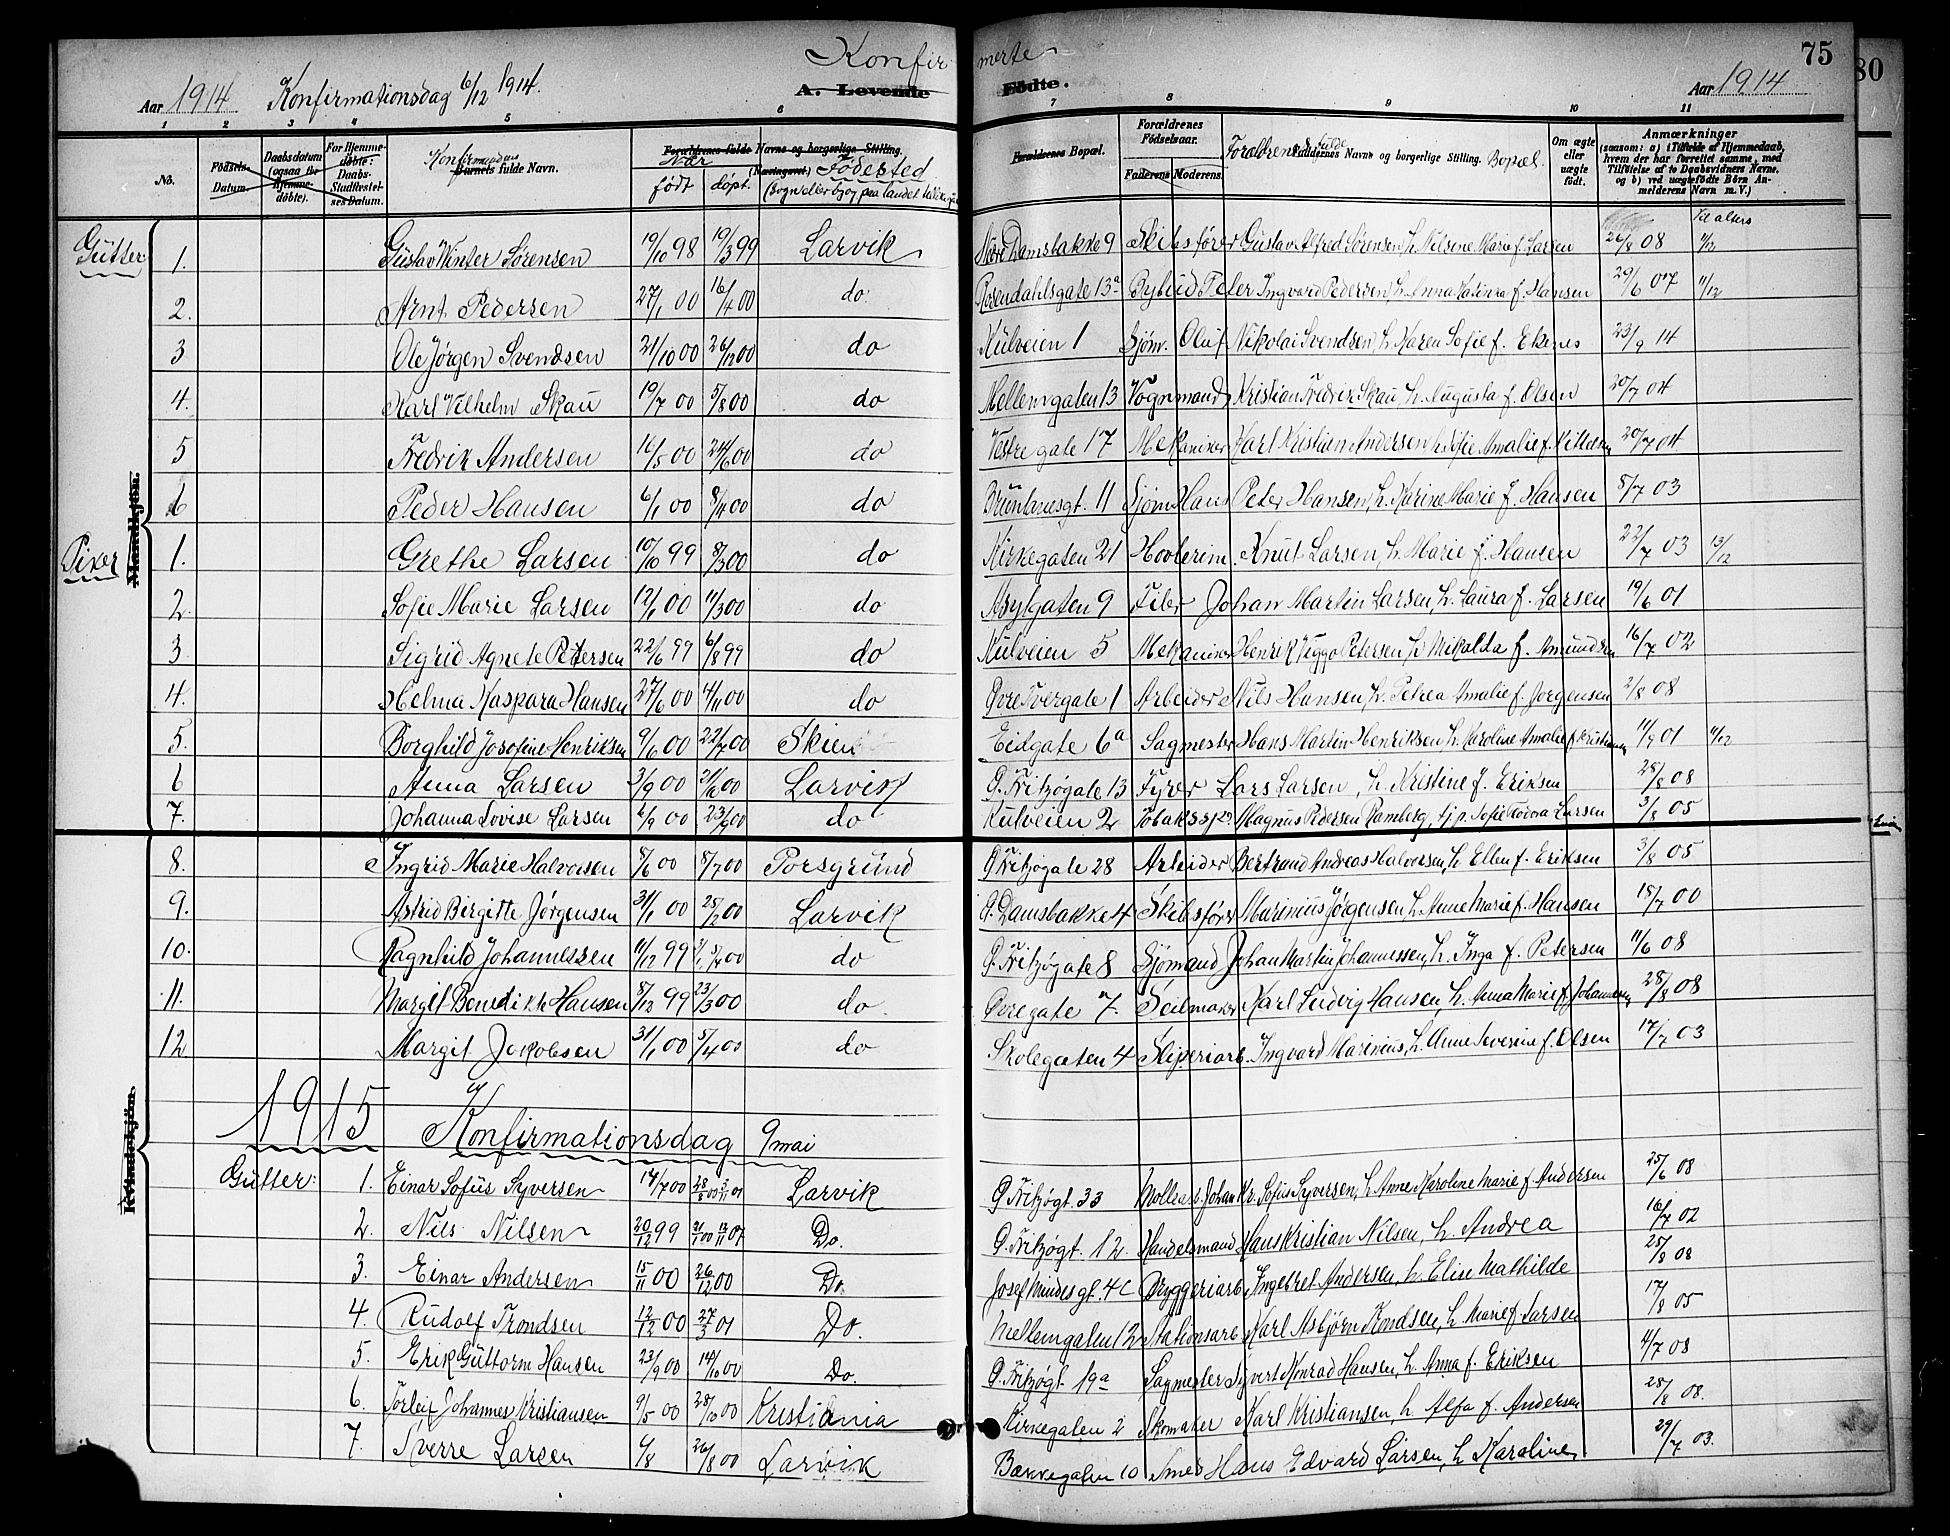 Konfirmerte
75
80
Aar 1914 Konfirmationsdag 6/12 1914.
A. Levende Fødte.
Aar 1914
1 2 3 4 5 6 7 8 9 10 11
No. Fødsels-Datum. Daabsdatum (ogsaa for hjemmedøbte). For Hjemmedøbte: Daabs-Stadfæstelses-Datum. Konfirmandens Barnets fulde Navn. Forældrenes fulde Navne og borgerlige Stilling. (Næringsvei.) Når født døpt. Fødested (Sogn eller by, paa landet tillike
Forældrenes Bopæl. Forældrenes Fødselsaar. Faderens Moderens. Forældrenes fulde Faddernes Navne og borgerlige Stilling. Bopæl. Om ægte eller uægte født. Anmærkninger (saasom: a) i Tilfælde af Hjemmedaab, hvem der har forrettet samme, med Tilføielse af to Daabsvidners Navne, og b) ved uægtefødte Børn Anmelderens Navn m. V.)
Til alters
Mandkjøn.
Kvindekjøn.
Gutter 1. Gustav Winter Sørensen 19/10 98 19/3 99 Larvik Nedre Damsbakke 9 Skibsfører Gustav Alfred Sørensen, h. Nilsine Marie f. Larsen 26/8 08 11/12
2. Arnt Pedersen 27/1 00 16/4 00 do Rosendahlsgate 13a Bybud Peter Ingvard Pedersen, h. Anna Katinka f. Hansen 29/6 07 11/12
3 Ole Jørgen Svendsen 21/10 00 26/12 00 do Kulveien 1 Sjøm. Oluf Nikolai Svendsen, h. Karen Sofie f. Ekenes 23/9 14
4. Karl Vilhelm Skau 19/7 00 5/8 00 do Mellemgaten 13 Vognmand Kristian Fredrik Skau, h. Augusta f. Olsen 20/7 04
5 Fredrik Andersen 16/5 00 24/6 00 do Vestre gate 17 Mekaniker Karl Kristian Andersen, h. Sofie Amalie f. Kittelsen 20/7 04
6 Peder Hansen 6/1 00 8/4 00 do 11 Sjøm Hans Peter Hansen, h. Karine Marie f. Hansen 8/7 03
Piker 1. Grethe Larsen 10/10 99 8/3 00 do Kirkegaten 21 Knut Larsen, h. Marie f. Hansen 22/7 03 13/12
2. Sofie Marie Larsen 12/1 00 11/3 00 do Asylgaten 9 Filer Johan Martin Larsen, h. Laura f. Larsen 19/6 01
3 Sigrid Agnete Petersen 22/6 99 6/8 99 do Kulveien 5 Mekaniker Henrik Viggo Petersen, h. Mikalda f. Amundsen 16/7 02
4. Helma Kaspara Hansen 27/6 00 4/11 00 do Øvre Tvergate 1 Arbeider Nils Hansen, h. Petrea Amalie f. Jørgensen 2/8 08
5. Borghild Josefine Henriksen 9/6 00 22/7 00 Skien Eidgate 6a Sagmester Hans Martin Henriksen, h. Karoline Amalie f. Kristiansen 11/9 01 11/12
6 Anna Larsen 3/9 00 21/10 00 Larvik Ø. Fritzøgate 13 Fyrb. Lars Larsen, h. Kristine f. Eriksen 28/8 08
7. Johanna Lovise Larsen 6/9 00 23/9 00 do Kulveien 2 Tobakssp. Magnus Pedersen Ramberg, tjp. Sofie Teodora Larsen 3/8 05
8. Ingrid Marie Halvorsen 8/6 00 8/7 00 Porsgrund Ø Fritzøgate 28 Arbeider Bertrand Andreas Halvorsen, h. Ellen f. Eriksen 3/8 05
9. Astrid Birgitte Jørgensen 31/1 00 25/2 00 Larvik Ø. Damsbakke 4 Skibsfører Marinius Jørgensen, h. Anne Marie f. Hansen 18/7 00
10. Ragnhild Johannessen 11/12 99 00 do Ø Fritzøgate 8 Sjømand Johan Martin Johannessen, h. Inga f. Petersen 11/6 08
11. Margit Benedikte Hansen 8/12 99 23/3 00 do. Øvregate 7. Seilmaker Karl Ludvig Hansen, h. Anna Marie f. Johannesen 28/8 08
12 Margit Jakobsen 31/1 00 8/4 00 do Skolegaten 4 Sliperiarb. Ingvard Marinius, h. Anne Severine f. Olsen 17/7 03
1915 Konfirmationsdag 9 mai
Gutter: 1. Einar Sofus Syversen 14/7 00 Larvik Ø Fritzøgt. 33 Møllearb. Johan Kr. Sofus Syversen, h. Anne Karoline Marie f. Andersen 25/6 08
2. Nils Nilsen 20/12 99 Do. Ø. Fritzøgt. 12. Handelsmand Hans Kristian Nilsen, h. Andrea 16/7 02
3. Einar Andersen 15/11 00 26/12 00 Do. Josef Mindes gt. 4c Bryggeriarb. Ingebret Andersen, h. Elise Mathilde 25/8 08
4. Rudolf Trondsen 12/12 00 27/3 01 Do. Mellemgaten 12 Stationsarb Karl Asbjørn Trondsen, h. Marie f. Larsen 17/8 05
5. Erik Guttorm Hansen 23/9 00 14/10 00 Do. Ø. Fritzøgt. 19a Sagmester Syvert Konrad Hansen, h. Anna f. Eriksen 4/7 08
6. Torleif Johannes Kristiansen 9/5 00 28/10 00 Kristiania Kirkegaten 2 Skomaker Karl Kristiansen, h. Alfa f. Andersen 28/8 08.
7. Sverre Larsen 26/8 00 Larvik Bækkegaten 10 Smed Hans Edvard Larsen, h Karoline 29/7 03.